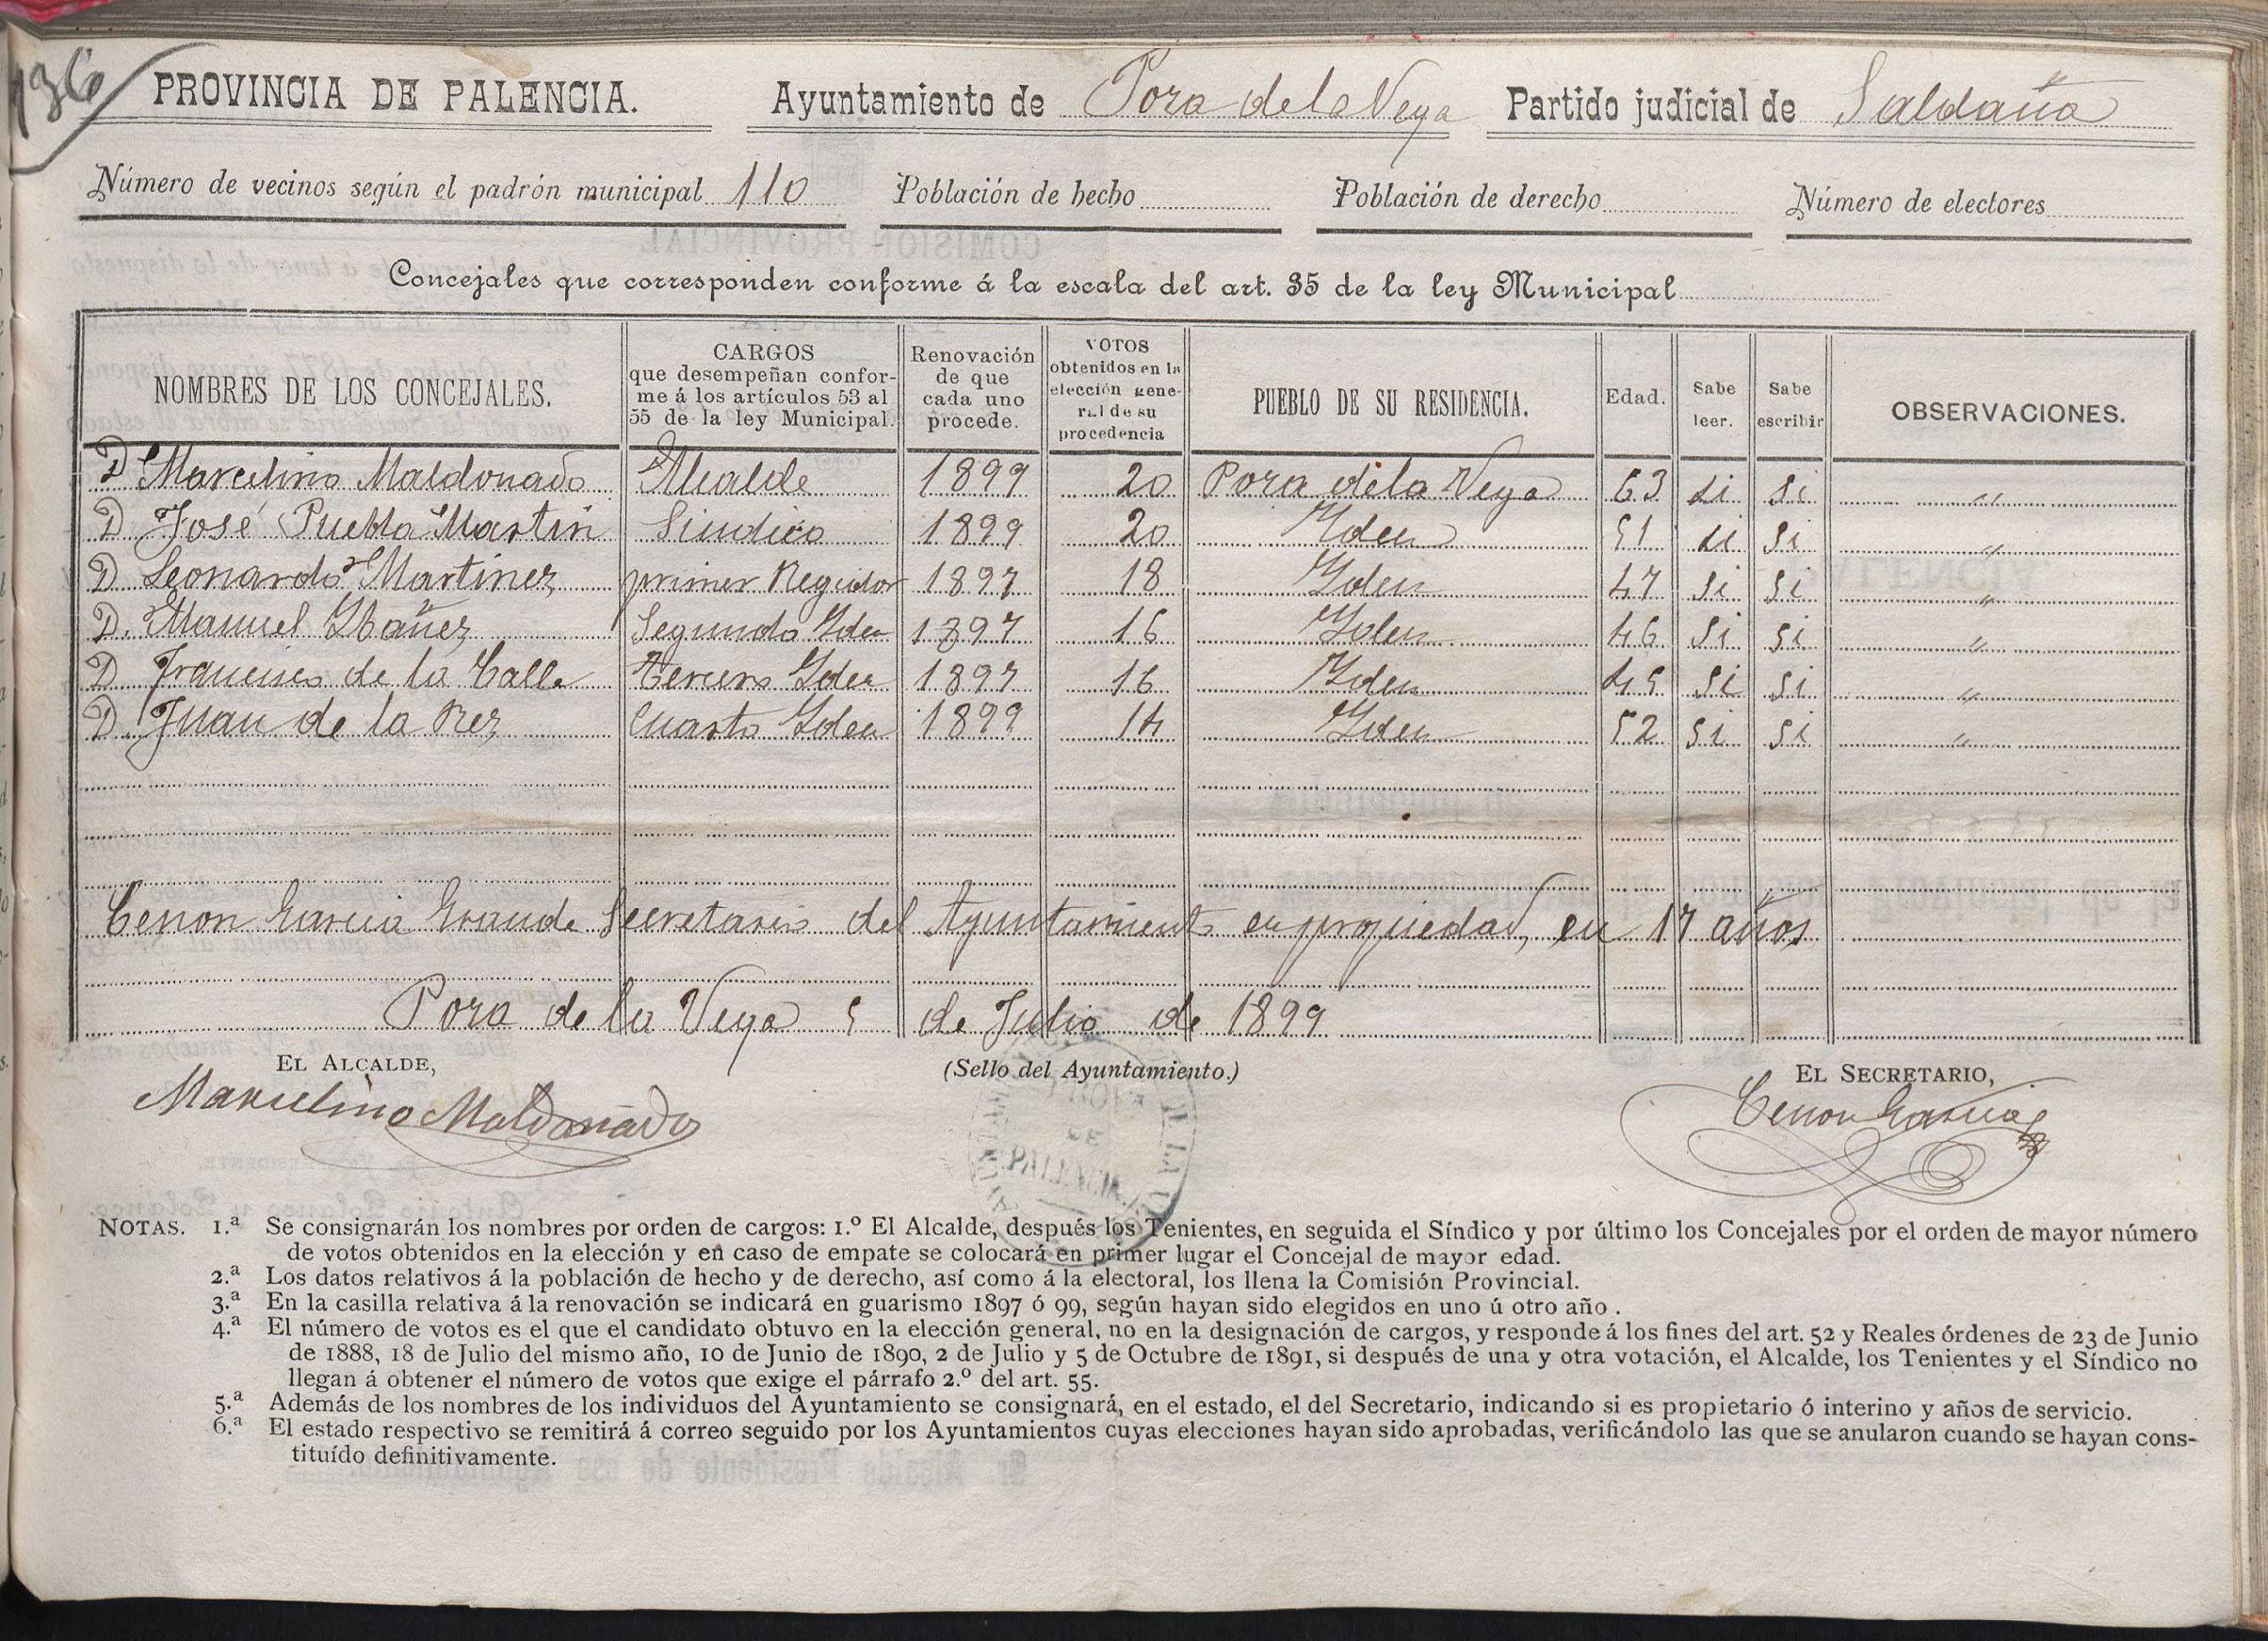 136
PROVINCIA DE PALENCIA. Ayuntamiento de Poza de la Vega Partido judicial de Saldaña
Número de vecinos según el padrón municipal 110 Población de hecho Población de derecho Número de electores
Concejales que corresponden conforme á la escala del art. 35 de la ley Municipal
NOMBRES DE LOS CONCEJALES. CARGOS que desempeñan confor- me á los artículos 53 al 55 de la ley Municipal. Renovación de que cada uno procede. VOTOS obtenidos en la elección gene- ral de su procedencia PUEBLO DE SU RESIDENCIA. Edad. Sabe leer. Sabe escribir OBSERVACIONES.
D. Marcelino Maldonado Alcalde 1899 20 Poza de la Vega 63 si si "
D. José Puebla Martin Sindico 1899 20 Yden 51 si si "
D. Leonardo Martinez primer Regidor 1897 18 Yden 47 si si "
D. Manuel Ybañez Segundo Yden 1897 16 Yden 46 si si "
D. Francisco de la Calle tercero Yden 1897 16 Yden 45 si si "
D. Juan de la Rez Cuarto Yden 1899 14 Yden 52 si si "
Cenon Garcia Grande Secretario del Ayuntamiento en propiedad, en 17 años
Poza de la Vega 5 de Julio de 1899
EL ALCALDE, (Sello del Ayuntamiento.) EL SECRETARIO,
Marcelino Maldonado Cenon Garcia
PALENCIA
NOTAS. 1.ª Se consignarán los nombres por orden de cargos: 1.º El Alcalde, después los Tenientes, en seguida el Síndico y por último los Concejales por el orden de mayor número
de votos obtenidos en la elección y en caso de empate se colocará en primer lugar el Concejal de mayor edad.
2.ª Los datos relativos á la población de hecho y de derecho, así como á la electoral, los llena la Comisión Provincial.
3.ª En la casilla relativa á la renovación se indicará en guarismo 1897 ó 99, según hayan sido elegidos en uno ú otro año.
4.ª El número de votos es el que el candidato obtuvo en la elección general, no en la designación de cargos, y responde á los fines del art. 52 y Reales órdenes de 23 de Junio
de 1888, 18 de Julio del mismo año, 10 de Junio de 1890, 2 de Julio y 5 de Octubre de 1891, si después de una y otra votación, el Alcalde, los Tenientes y el Síndico no
llegan á obtener el número de votos que exige el párrafo 2.º del art. 55.
5.ª Además de los nombres de los individuos del Ayuntamiento se consignará, en el estado, el del Secretario, indicando si es propietario ó interino y años de servicio.
6.ª El estado respectivo se remitirá á correo seguido por los Ayuntamientos cuyas elecciones hayan sido aprobadas, verificándolo las que se anularon cuando se hayan cons-
tituído definitivamente.